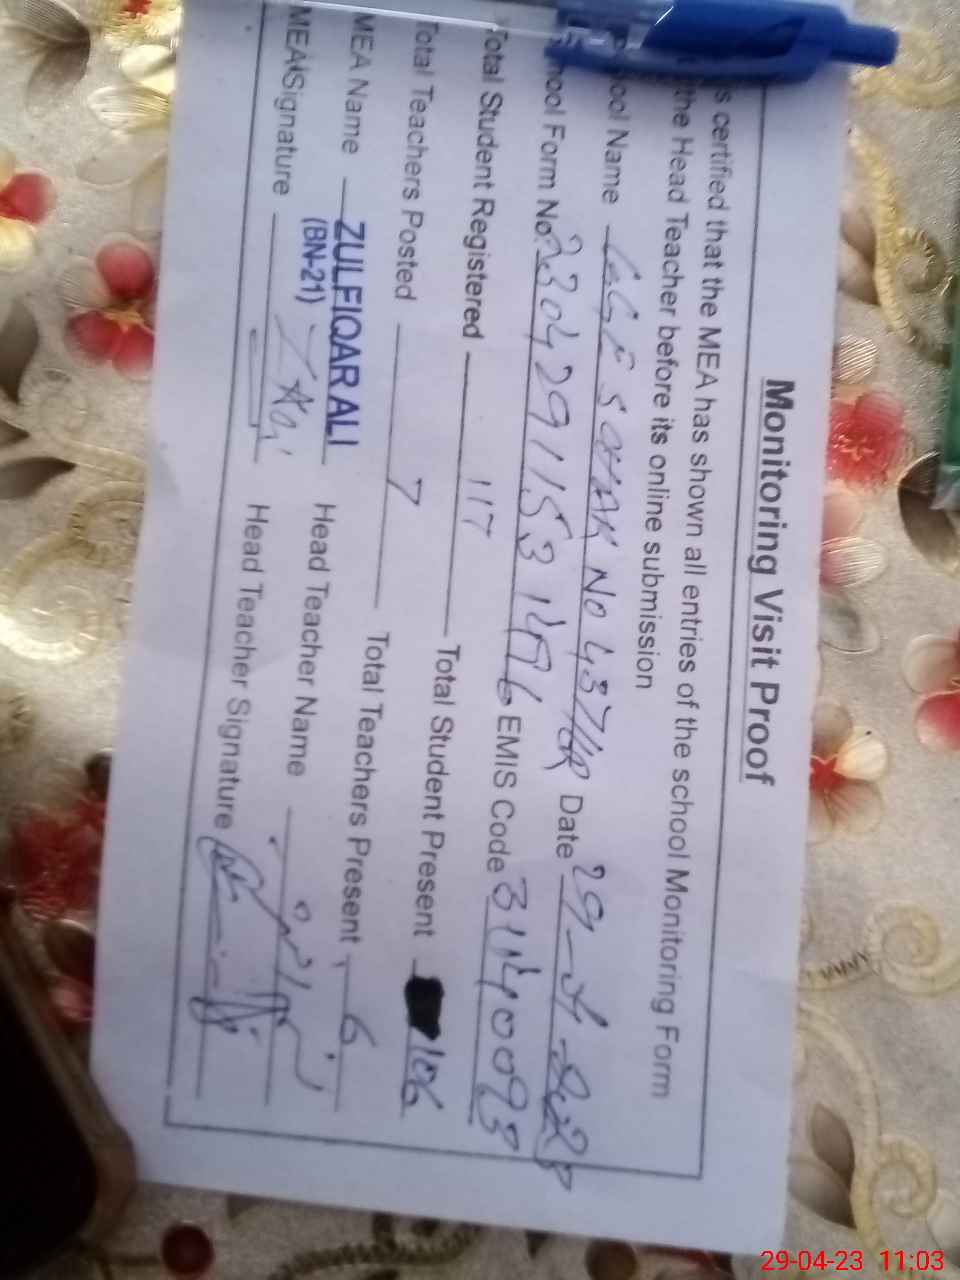 Monitoring Visit Proof
is certified that the MEA has shown all entries of the school Monitoring Form
the Head Teacher before its online submission
School Name CHAK No 437/6R Date 29-4-2023
School Form No. EMIS Code 31140093
Total Student Registered 117 Total Student Present 106
Total Teachers Posted 7 Total Teachers Present 6
MEA Name ZULFIQAR ALI Head Teacher Name
(BN-21)
MEA Signature Head Teacher Signature
29-04-23 11:03